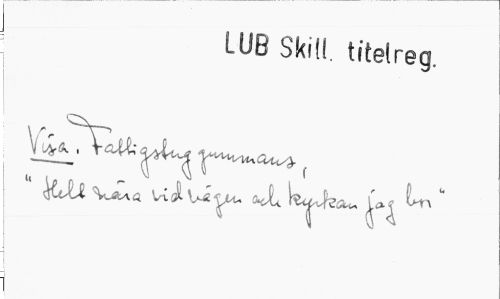 LUB Skill. titelreg.
Visa. Fattigstuggummans,
"Helt nära vid vägen och kyrkan jag bor"